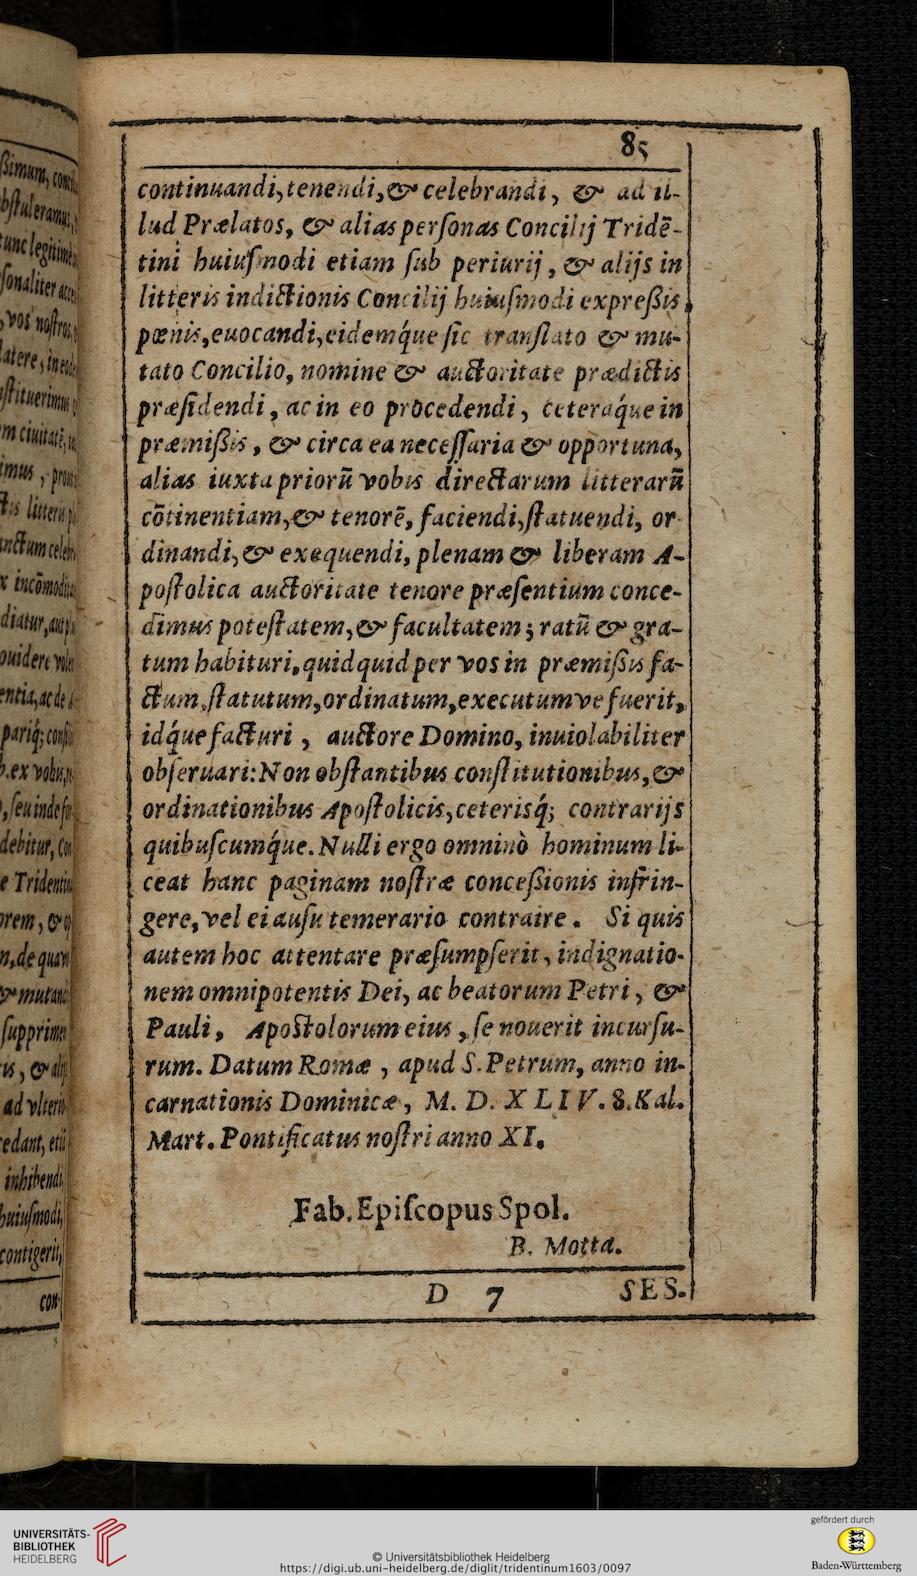 85
continuandi, tenendi, & celebrandi, & ad il-
lud Prælatos, & alias perſonas Concilij Tridē-
tini huiuſmodi etiam ſub periurij, & alijs in
litteris indictionis Concilij huiuſmodi expreßis
pœnis, euocandi, eidemq́ue ſic tranſlato & mu-
tato Concilio, nomine & auctoritate prædictis
præſidendi, ac in eo procedendi, ceteraq́ue in
præmißis, & circa ea neceſſaria & opportuna,
alias iuxta priorū vobis directarum litterarū
cōtinentiam, & tenorē, faciendi, ſtatuendi, or-
dinandi, & exequendi, plenam & liberam A-
poſtolica auctoritate tenore præſentium conce-
dimus poteſtatem, & facultatem; ratū & gra-
tum habituri, quidquid per vos in præmißis fa-
ctum, ſtatutum, ordinatum, executumve fuerit,
idq́ue facturi, auctore Domino, inuiolabiliter
obſeruari: Non obſtantibus conſtitutionibus, &
ordinationibus Apoſtolicis, ceterisq́; contrarijs
quibuſcumq́ue. Nulli ergo omninò hominum li-
ceat hanc paginam noſtræ conceßionis infrin-
gere, vel ei auſu temerario contraire. Si quis
autem hoc attentare præſumpſerit, indignatio-
nem omnipotentis Dei, ac beatorum Petri, &
Pauli, Apoſtolorum eius, ſe nouerit incurſu-
rum. Datum Romæ, apud S. Petrum, anno in-
carnationis Dominicæ, M. D. XLIV. 8. Kal.
Mart. Pontificatus noſtri anno XI.
Fab. Epiſcopus Spol.
B. Motta.
D 7 SES.
UNIVERSITÄTS-
BIBLIOTHEK
HEIDELBERG
© Universitätsbibliothek Heidelberg
https://digi.ub.uni-heidelberg.de/diglit/tridentinum1603/0097
gefördert durch
Baden-Württemberg